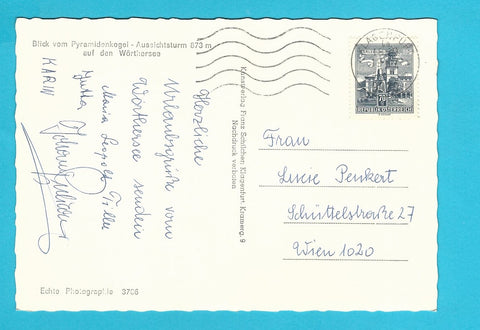 Blick vom Pyramidenkogel - Aussichtsturm 873 m
auf den Wörthersee
Herzliche
Urlaubsgrüße vom
Wörthersee senden
Maria Leopold Tille
Jutta
KARIN
Echte Photographie 3706
Kunstverlag Franz Schilcher, Klagenfurt, Kramerg. 9
Nachdruck verboten
KLAGENFURT
REPUBLIK ÖSTERREICH
Frau
Lucie Penkert
Schüttelstraße 27
Wien 1020